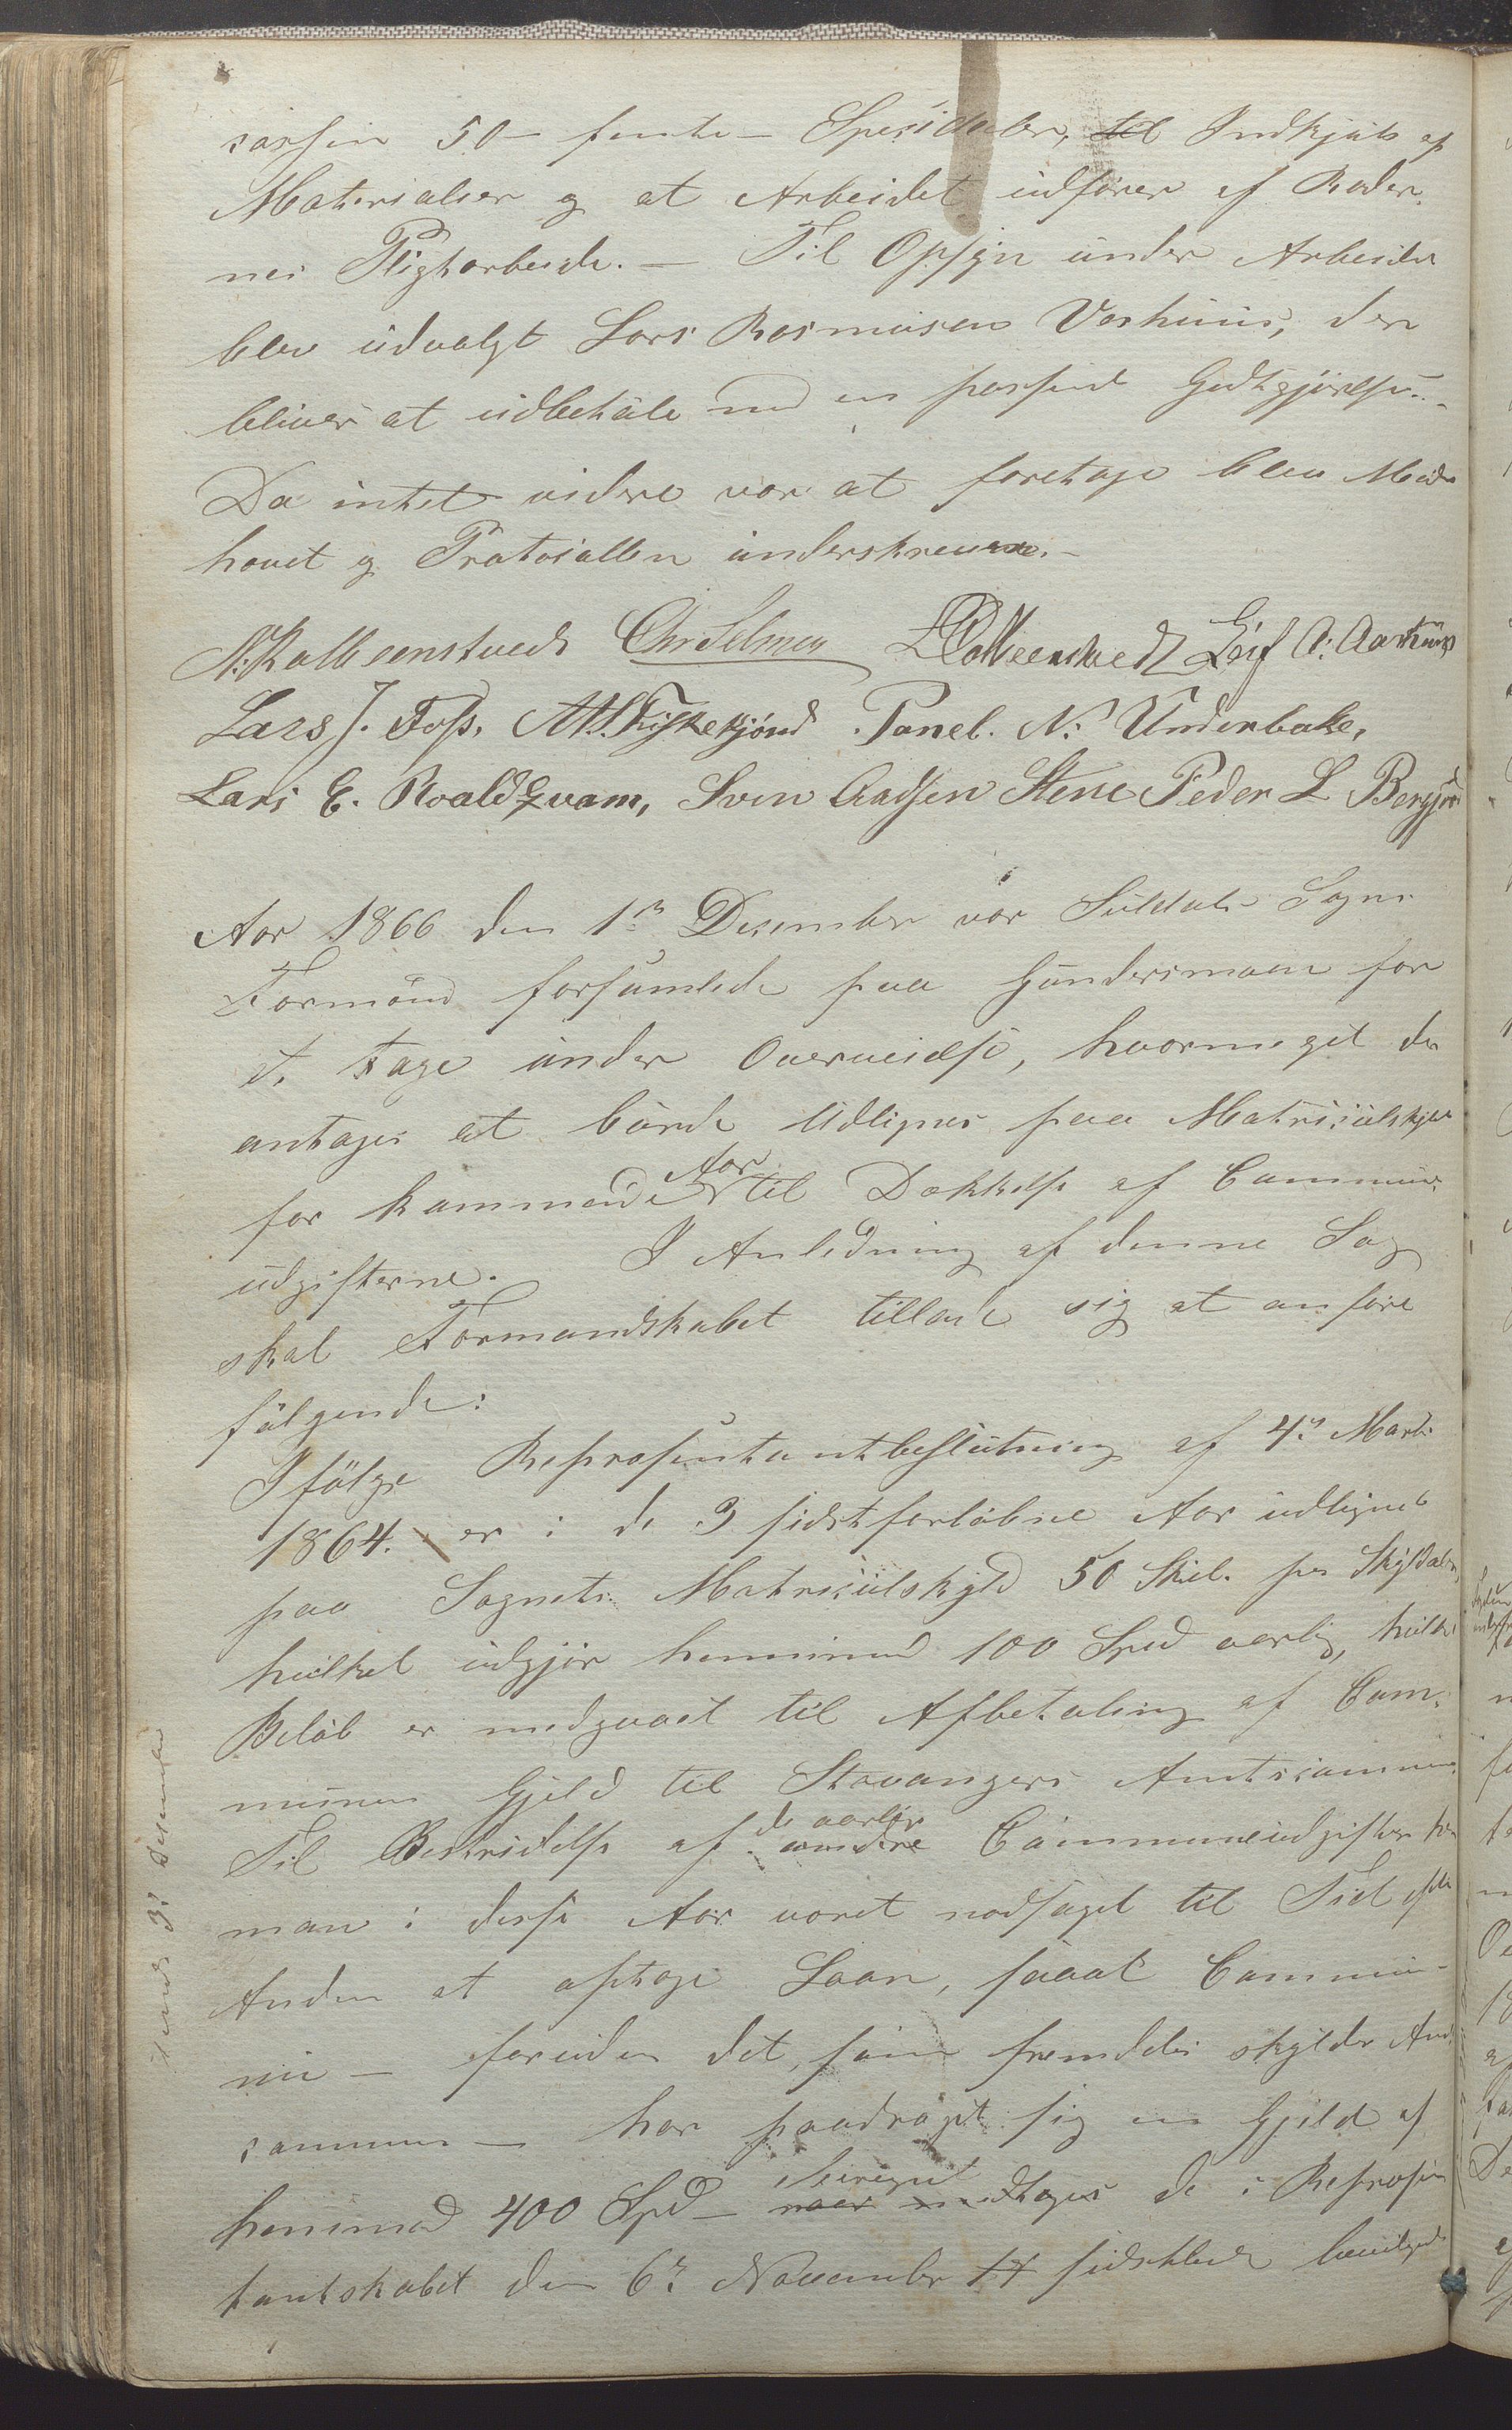 cassen 50 – femti – Specidaler, til Indkjøb af
Materialier og at Arbeidet udføres af Roder-
nes Pligtarbeide. – Til Opsyn under Arbeidet
blev udvalgt Lars Rasmusen Vashuus, der
bliver at udbetale med en passende Godtgjørelse. –
Da intet videre var at foretage blev Mødet
hævet og Protocollen underskreven. –
N. Kolbeenstvedt Chr Selmer L Kolbeenstvedt Leif A. Aarhuus
Lars J. Foss. A.H. Fiskekjønd . Panel. N. Underbake,
Lars E. Roaldqvam, Sven Aadsen Stene Peder L Bergjord
Aar 1866 den 1ste December var Suldals Sogns
Formænd forsamlede paa Gundersmoen for
at tage under Overveielse, hvormeget der
antages at burde Udlignes paa Matriculskyld
for kommende Aar til Dækkelse af Commune-
udgifterne. I Anledning af denne Sag
skal Formandskabet tillade sig at anføre
følgende:
Ifølge Repræsentantbeslutning af 4de Marts
1864. er i de 3 sidstforløbne Aar udlignet
paa Sognets Matriculskyld 50 Skil. pr Skylddaler,
hvilket udgjør henimod 100 Spd aarlig, hvilket
Beløb er medgaaet til Afbetaling af Com-
munens Gjeld til Stavangers Amtscommune.
Til Bestridelse af de aarlige andre Communeudgifter har
man i disse Aar været nødsaget til Tid efter
Anden at optage Laan, saaat Communen
nu – foruden det som fremdeles skyldes Amts
communen – har paadraget sig en Gjeld af
henimod 400 Spd – iberegnet naar medtages de i Repræsen
tantskabet den 6te November sidstleden bevilgede
December